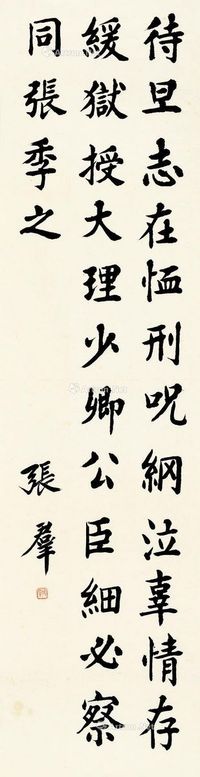 待旦志在恤刑呪綱泣辜情存
緩獄授大理少卿公臣細必察
同張季之
張羣